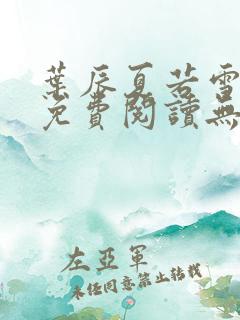 葉辰夏若雪
免費閱讀無
左亞軍
未經同意禁止轉載